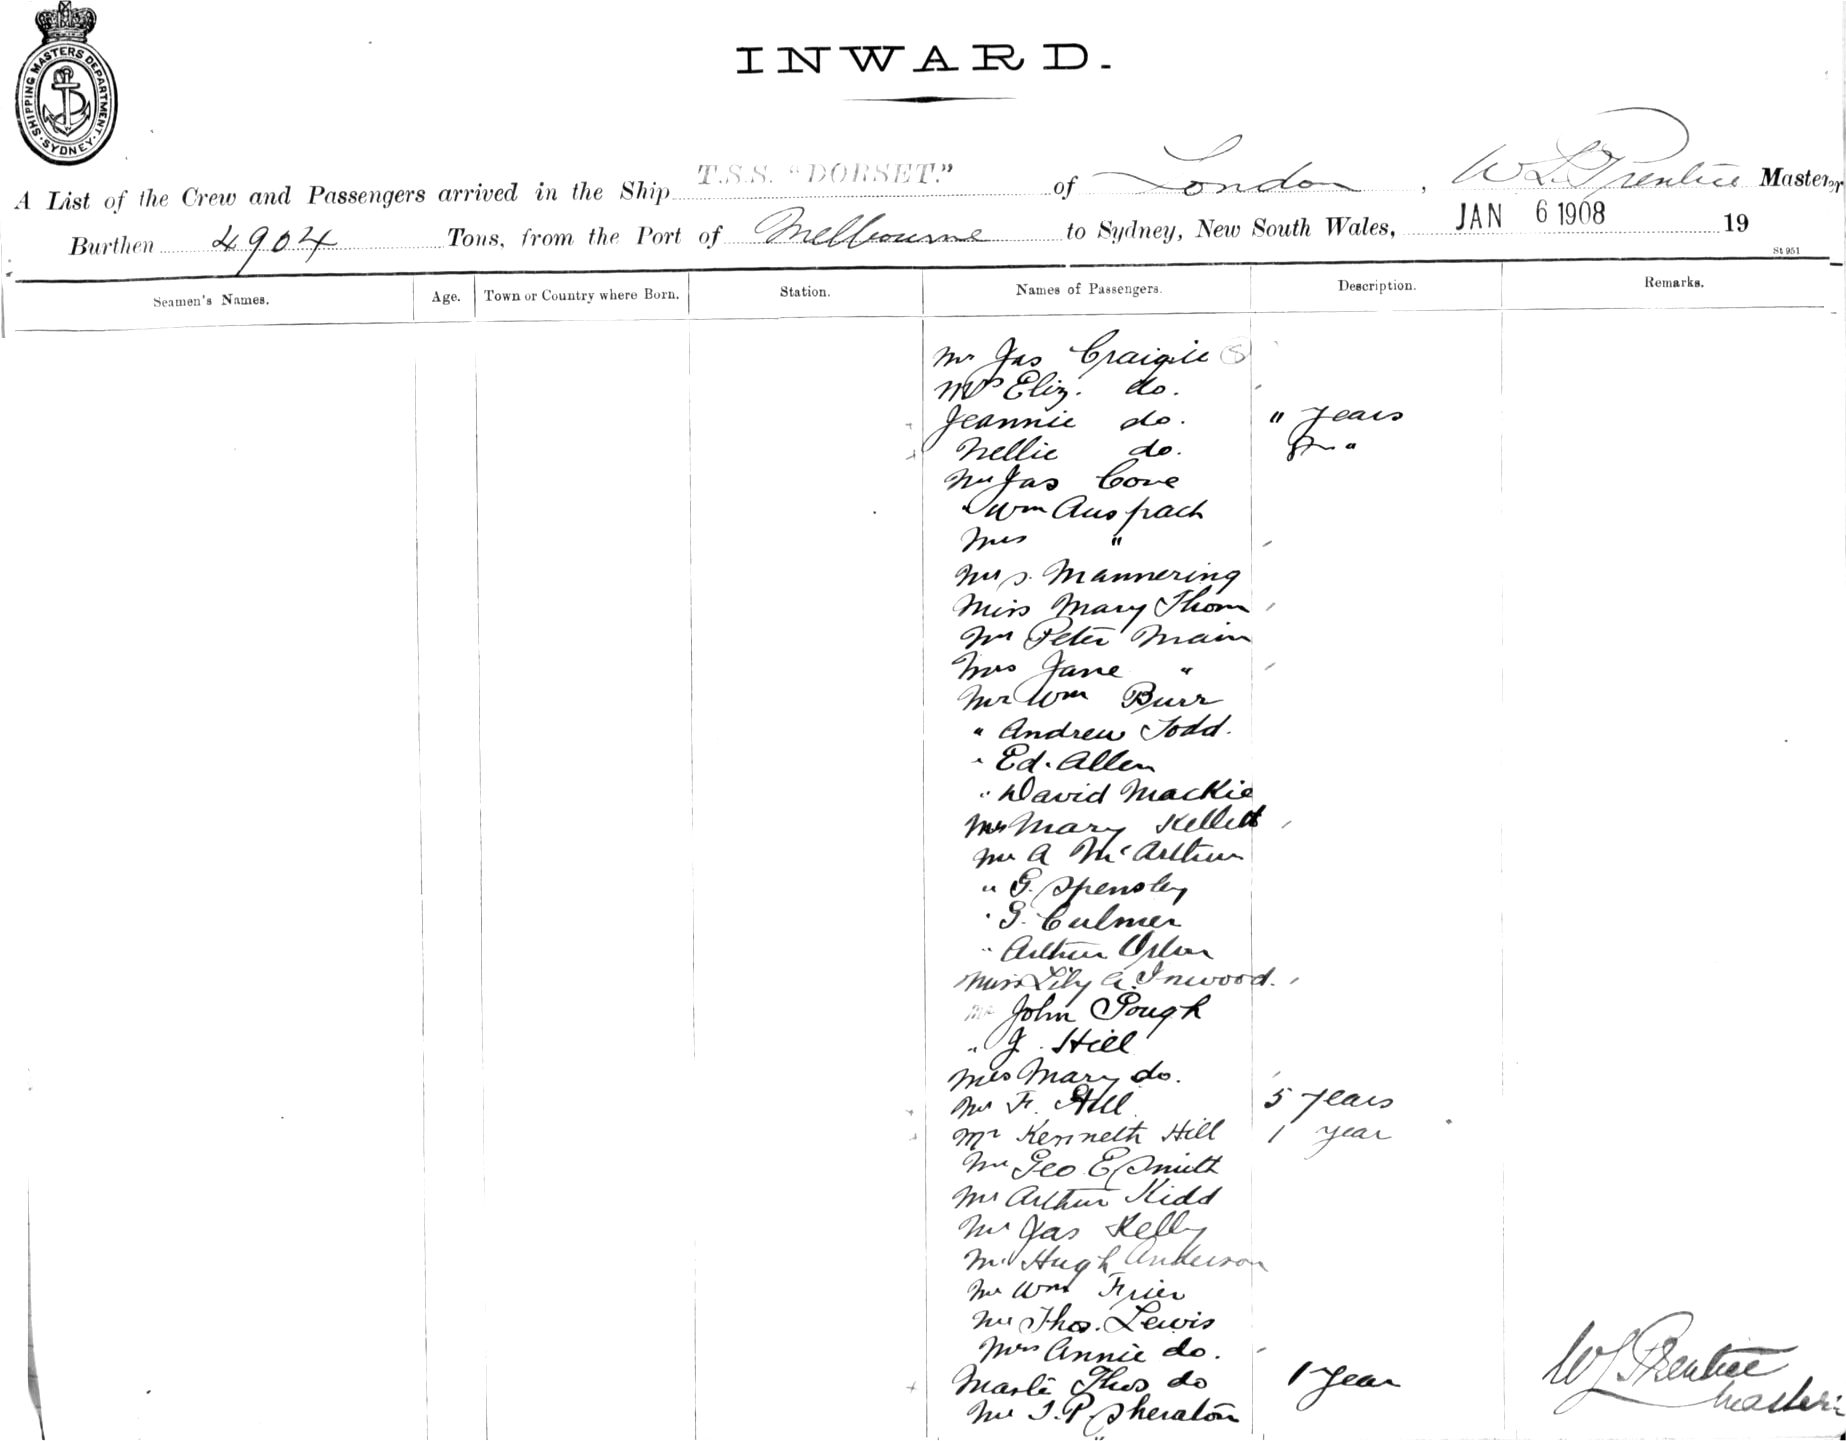 SHIPPING MASTERS DEPARTMENT SYDNEY
INWARD.
A List of the Crew and Passengers arrived in the Ship T.S.S. "DORSET." of London, W L Prentice Master
Burthen 4904 Tons, from the Port of Melbourne to Sydney, New South Wales, JAN 6 1908 19
St 951
Seamen's Names. Age. Town or Country where Born. Station. Names of Passengers. Description. Remarks.
Mr Jas Craigie
Mrs Eliz. do.
Jeannie do. " years
Nellie do. "
Mr Jas Cove
" Wm Auspach
Mrs "
Mrs. Mannering
Miss Mary Thom
Mr Peter Main
Mrs Jane "
Mr Wm Burr
" Andrew Todd.
" Ed. Allen
" David Mackie
Mrs Mary Kellett
Mr A McArthur
" G. Spensley
" G. Culmer
" Arthur
Miss Lily A. Inwood.
Mr John Pough
" J. Hill
Mrs Mary do.
Mr F. Hill 5 years
Mr Kenneth Hill 1 year
Mr Geo E Smith
Mr Arthur Kidd
Mr Jas Kelly
Mr Hugh Anderson
Mr Wm Frier
Mr Thos. Lewis
Mrs Annie do.
Thos do 1 year
Mr T. P Sheraton
W L Prentice
Master